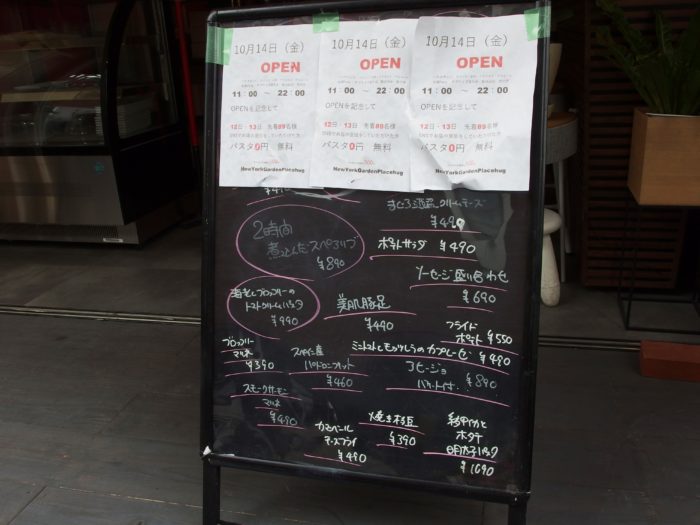 10月14日（金）
OPEN
11:00 ～ 22:00
OPENを記念して
12日・13日 先着89名様
パスタ0円 無料
NewYorkGardenPlacehug
10月14日（金）
OPEN
11:00 ～ 22:00
OPENを記念して
12日・13日 先着89名様
パスタ0円 無料
NewYorkGardenPlacehug
10月14日（金）
OPEN
11:00 ～ 22:00
OPENを記念して
12日・13日 先着89名様
パスタ0円 無料
NewYorkGardenPlacehug
クリームチーズ
¥490
2時間
煮込んだスペアリブ
¥890
ポテトサラダ ¥490
ソーセージ盛り合わせ
¥690
海老とブロッコリーの
トマトクリームパスタ
¥990
美肌豚足
¥490
フライド
ポテト ¥550
ブロッコリー
マリネ
¥390
スペイン産
¥460
ミニトマトとモッツァレラのカプレーゼ ¥490
¥890
スモークサーモン
マリネ
¥490
カマンベール
チーズフライ
¥490
焼き枝豆
¥390
ホタテ
明太子パスタ
¥1090